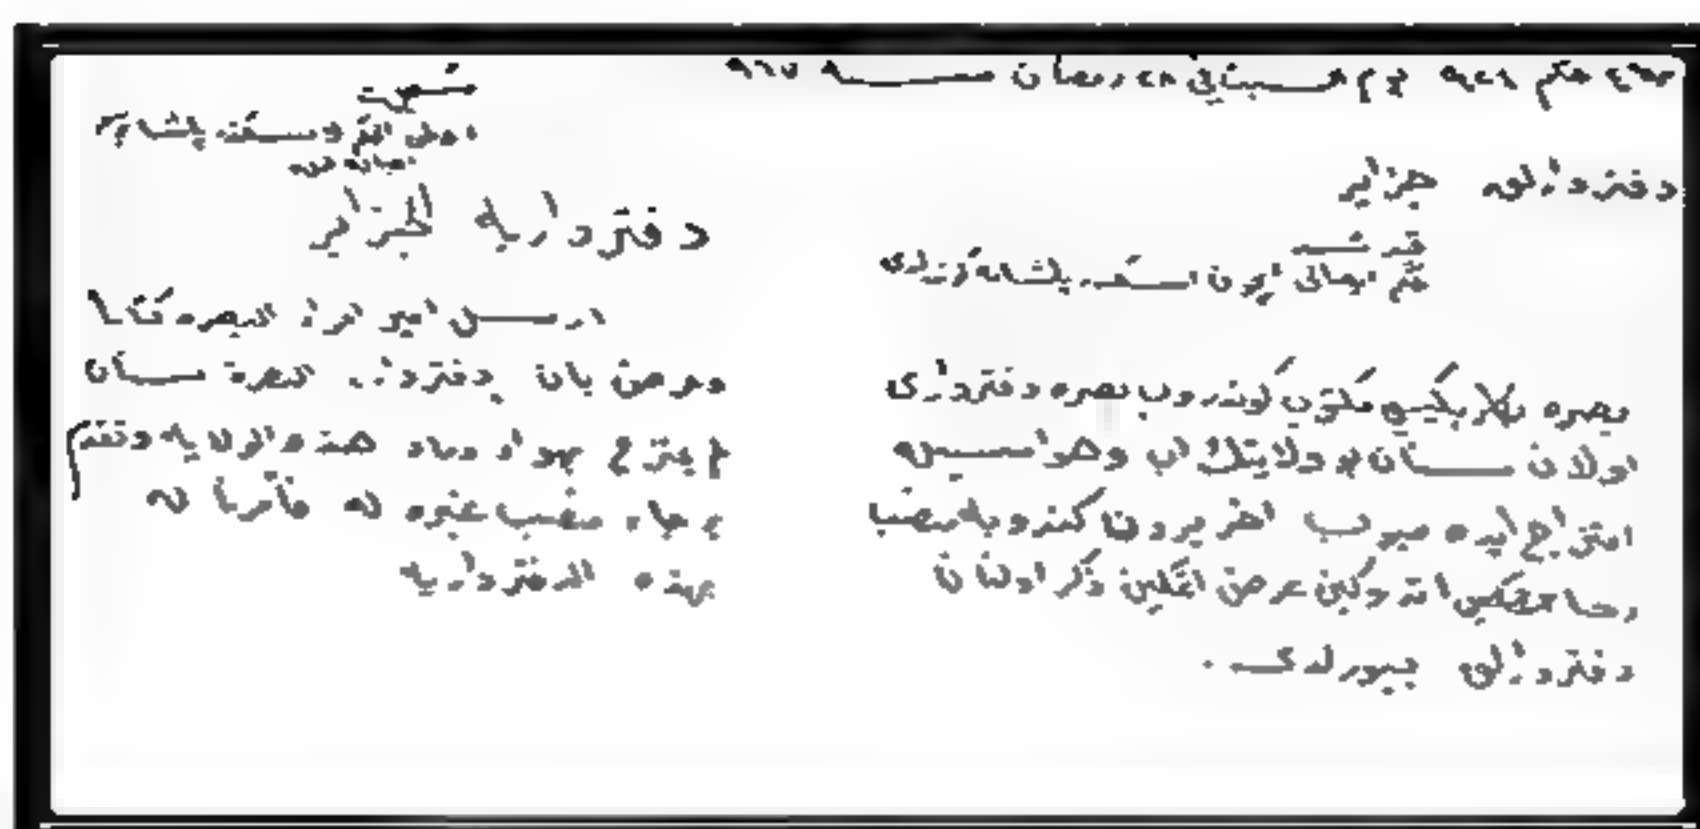 حكم ٩٢٦ يوم السبت في ٢٨ رمضان سنة ٩٦٧
دفتردارلق جزاير
اسكندر پاشايه
بصره بكلربكيسى مكتوب كوندروب بصره دفتردارى
اولان سنان بو ولايتك اب وهواسيله
امتزاج ايده ميوب اخر يردن كندويه منصب
رجا اتدوكين عرض اتمكين ذكر اولنان
دفتردارلق بيورلدى.
اسكندر پاشايه
دفتردارية الجزاير
ارسل امير امراء البصره كتابا
وعرض بان دفتردار البصرة سنان
لم يمتزج بهواء وماء هذه الولاية
رجاء منصب غيره له فأمرنا له
بهذه الدفتردارية